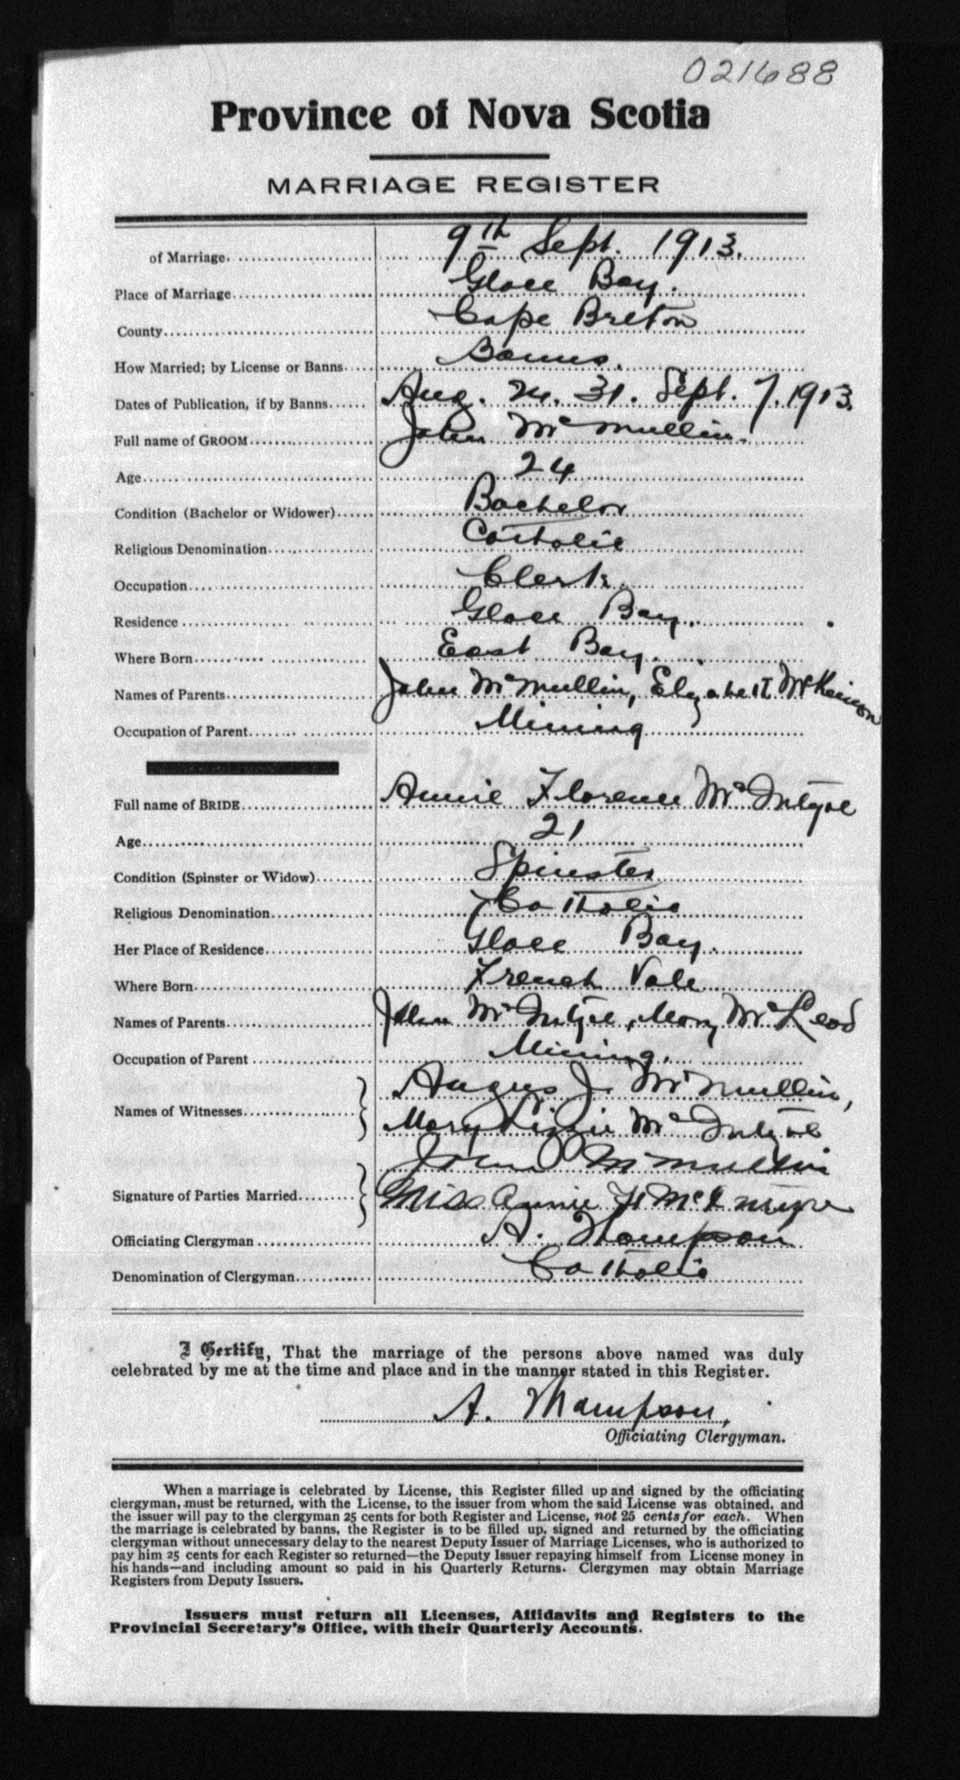 021688
Province of Nova Scotia
MARRIAGE REGISTER
of Marriage. 9th Sept. 1913.
Place of Marriage Glace Bay.
County Cape Breton
How Married; by License or Banns Banns.
Dates of Publication, if by Banns Aug. 31. Sept. 7. 1913.
Full name of GROOM John McMullin.
Age 24
Condition (Bachelor or Widower) Bachelor
Religious Denomination Catholic
Occupation Clerk.
Residence Glace Bay.
Where Born East Bay.
Names of Parents John McMullin, Elizabeth McKinnon
Occupation of Parent Mining
Full name of BRIDE Annie Florence McIntyre
Age 21
Condition (Spinster or Widow) Spinster
Religious Denomination Catholic
Her Place of Residence Glace Bay.
Where Born French Vale
Names of Parents John McIntyre, Mary McLeod
Occupation of Parent Mining.
Names of Witnesses Angus J. McMullin,
Mary Lizzie McIntyre
Signature of Parties Married John McMullin
Miss Annie F McIntyre
Officiating Clergyman A. Thompson
Denomination of Clergyman Catholic
I Certify, That the marriage of the persons above named was duly
celebrated by me at the time and place and in the manner stated in this Register.
A. Thompson,
Officiating Clergyman.
When a marriage is celebrated by License, this Register filled up and signed by the officiating
clergyman, must be returned, with the License, to the issuer from whom the said License was obtained, and
the issuer will pay to the clergyman 25 cents for both Register and License, not 25 cents for each. When
the marriage is celebrated by banns, the Register is to be filled up, signed and returned by the officiating
clergyman without unnecessary delay to the nearest Deputy Issuer of Marriage Licenses, who is authorized to
pay him 25 cents for each Register so returned—the Deputy Issuer repaying himself from License money in
his hands—and including amount so paid in his Quarterly Returns. Clergymen may obtain Marriage
Registers from Deputy Issuers.
Issuers must return all Licenses, Affidavits and Registers to the
Provincial Secretary's Office, with their Quarterly Accounts.